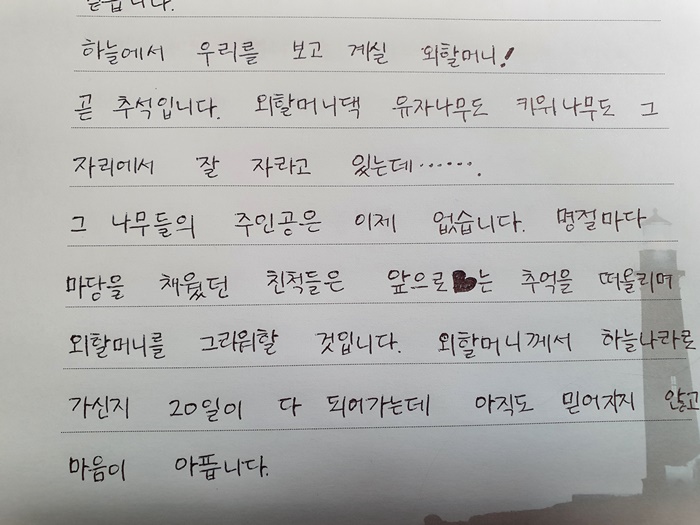 하늘에서 우리를 보고 계실 외할머니!
곧 추석입니다. 외할머니댁 유자나무도 키위나무도 그
자리에서 잘 자라고 있는데…….
그 나무들의 주인공은 이제 없습니다. 명절마다
마당을 채웠던 친척들은 앞으로는 추억을 떠올리며
외할머니를 그리워할 것입니다. 외할머니께서 하늘나라로
가신지 20일이 다 되어가는데 아직도 믿어지지 않고
마음이 아픕니다.